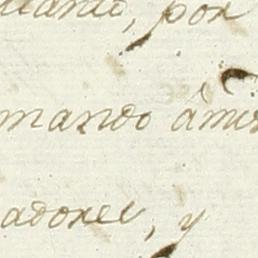 uanto, por
mando â mis
adores, y